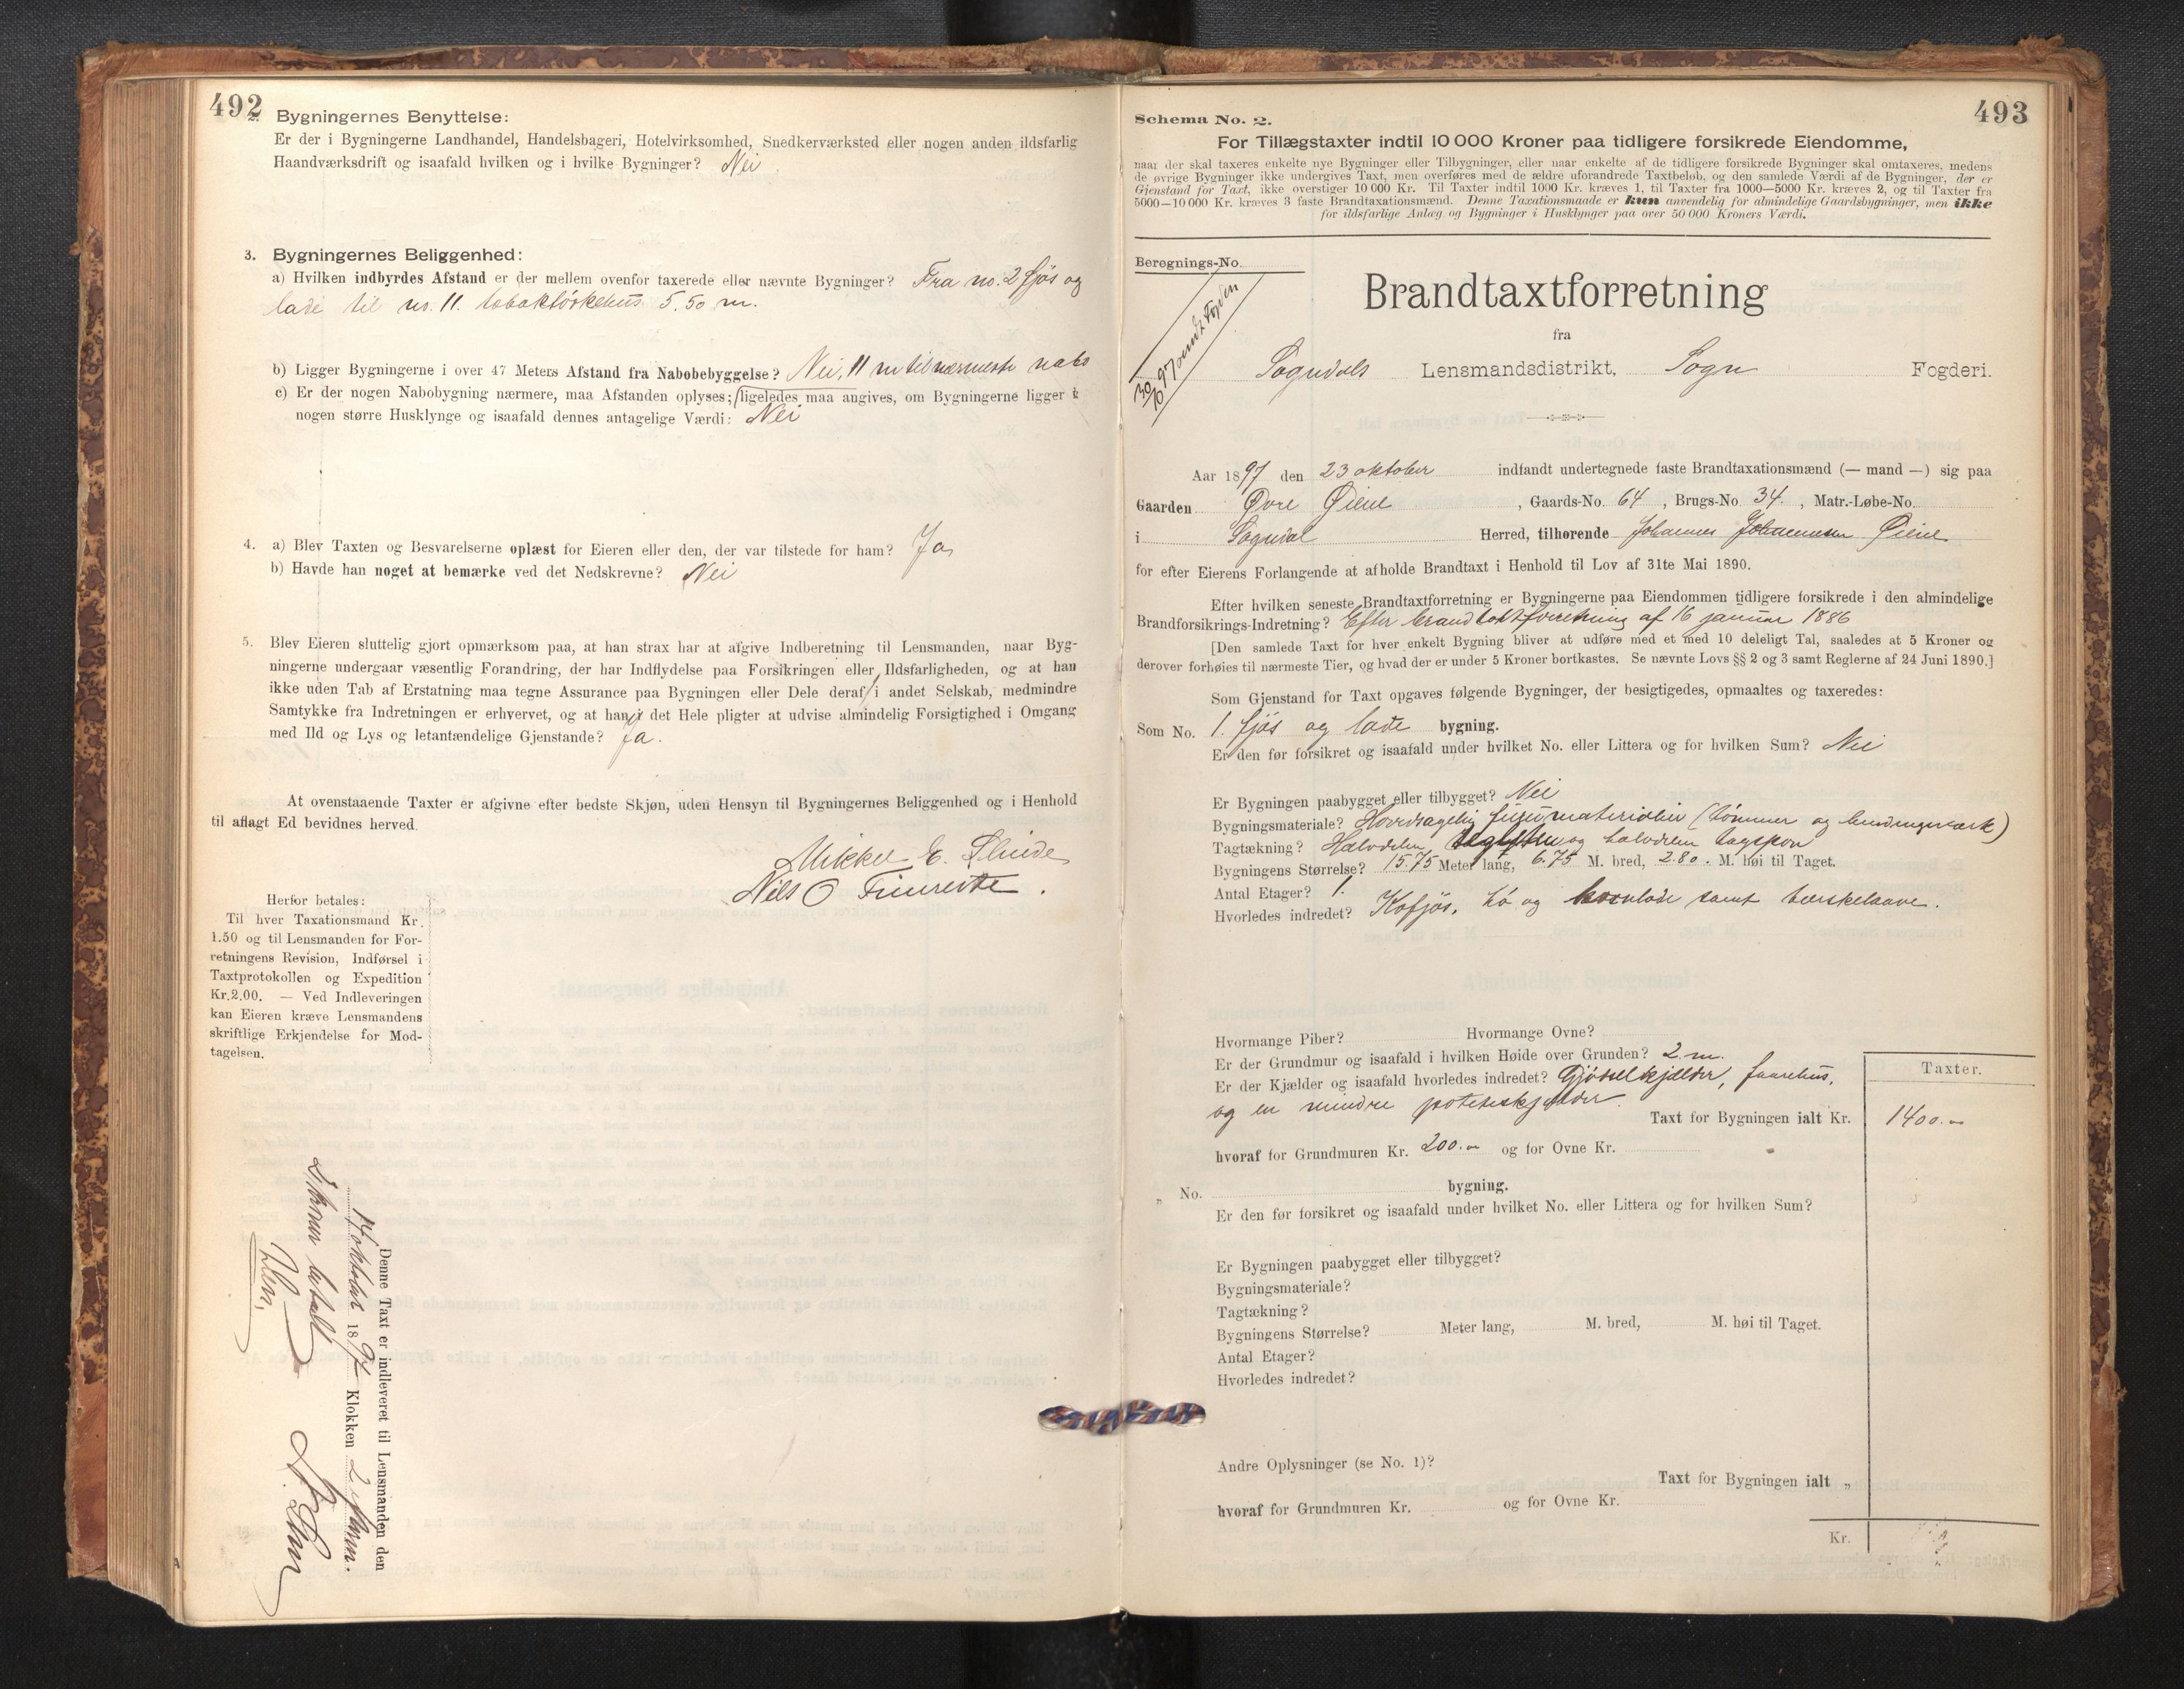 492
2. Bygningernes Benyttelse:
Er der i Bygningerne Landhandel, Handelsbageri, Hotelvirksomhed, Snedkerværksted eller nogen anden ildsfarlig
Haandværksdrift og isaafald hvilken og i hvilke Bygninger? Nei
3. Bygningernes Beliggenhed:
a) Hvilken indbyrdes Afstand er der mellem ovenfor taxerede eller nævnte Bygninger? Fra no. 2 fjøs og
lade til no. 11. 5.50 m.
b) Ligger Bygningerne i over 47 Meters Afstand fra Nabobebyggelse? Nei, 11 m til nærmeste nabo
c) Er der nogen Nabobygning nærmere, maa Afstanden oplyses; ligeledes maa angives, om Bygningerne ligger i
nogen større Husklynge og isaafald dennes antagelige Værdi: Nei
4. a) Blev Taxten og Besvarelserne oplæst for Eieren eller den, der var tilstede for ham? Ja
b) Havde han noget at bemærke ved det Nedskrevne? Nei
5. Blev Eieren sluttelig gjort opmærksom paa, at han strax har at afgive Indberetning til Lensmanden, naar Byg-
ningerne undergaar væsentlig Forandring, der har Indflydelse paa Forsikringen eller Ildsfarligheden, og at han
ikke uden Tab af Erstatning maa tegne Assurance paa Bygningen eller Dele deraf i andet Selskab, medmindre
Samtykke fra Indretningen er erhvervet, og at han i det Hele pligter at udvise almindelig Forsigtighed i Omgang
med Ild og Lys og letantændelige Gjenstande? Ja.
At ovenstaaende Taxter er afgivne efter bedste Skjøn, uden Hensyn til Bygningernes Beliggenhed og i Henhold
til aflagt Ed bevidnes herved.
Mikkel E. Slinde
Nils O
Herfor betales:
Til hver Taxationsmand Kr.
1.50 og til Lensmanden for For-
retningens Revision, Indførsel i
Taxtprotokollen og Expedition
Kr.2.00. — Ved Indleveringen
kan Eieren kræve Lensmandens
skriftlige Erkjendelse for Mod-
tagelsen.
Denne Taxt er indleveret til Lensmanden den
oktober 1897 Klokken 2
kroner betalt
493
Schema No. 2.
For Tillægstaxter indtil 10 000 Kroner paa tidligere forsikrede Eiendomme,
naar der skal taxeres enkelte nye Bygninger eller Tilbygninger, eller naar enkelte af de tidligere forsikrede Bygninger skal omtaxeres, medens
de øvrige Bygninger ikke undergives Taxt, men overføres med de ældre uforandrede Taxtbeløb, og den samlede Værdi af de Bygninger, der er
Gjenstand for Taxt, ikke overstiger 10 000 Kr. Til Taxter indtil 1000 Kr. kræves 1, til Taxter fra 1000—5000 Kr. kræves 2, og til Taxter fra
5000—10 000 Kr. kræves 3 faste Brandtaxationsmænd. Denne Taxationsmaade er kun anvendelig for almindelige Gaardsbygninger, men ikke
for ildsfarlige Anlæg og Bygninger i Husklynger paa over 50 000 Kroners Værdi.
Beregnings-No.
30/10 97 sendt Fogden
Brandtaxtforretning
fra
Sogndals Lensmandsdistrikt, Sogn Fogderi.
Aar 1897 den 23 oktober indfandt undertegnede faste Brandtaxationsmænd (— mand —) sig paa
Gaarden Øvre Øiene, Gaards-No. 64, Brugs-No. 34., Matr.-Løbe-No.
i Sogndal Herred, tilhørende Johannes Johannesen Øiene
for efter Eierens Forlangende at afholde Brandtaxt i Henhold til Lov af 31te Mai 1890.
Efter hvilken seneste Brandtaxtforretning er Bygningerne paa Eiendommen tidligere forsikrede i den almindelige
Brandforsikrings-Indretning? Efter brandtaktforretning af 16 januar 1886
[Den samlede Taxt for hver enkelt Bygning bliver at udføre med et med 10 deleligt Tal, saaledes at 5 Kroner og
derover forhøies til nærmeste Tier, og hvad der er under 5 Kroner bortkastes. Se nævnte Lovs §§ 2 og 3 samt Reglerne af 24 Juni 1890.]
Som Gjenstand for Taxt opgaves følgende Bygninger, der besigtigedes, opmaaltes og taxeredes:
Som No. 1. fjøs og lade bygning.
Er den før forsikret og isaafald under hvilket No. eller Littera og for hvilken Sum? Nei
Er Bygningen paabygget eller tilbygget? Nei
Bygningsmateriale? Hovedsagelig furumaterialier (tømmer og bindingsværk)
Tagtækning? Halvdelen og halvdelen tagspon
Bygningens Størrelse? 15.75 Meter lang, 6.75 M. bred, 2.80. M. høi til Taget.
Antal Etager? 1.
Hvorledes indredet? Kofjøs, hø og kornlade samt tærskelaave.
Hvormange Piber? Hvormange Ovne?
Er der Grundmur og isaafald i hvilken Høide over Grunden? 2 m.
Er der Kjælder og isaafald hvorledes indredet? Gjødselkjælder, faarehus,
og en mindre poteteskjælder.
Taxter.
Taxt for Bygningen ialt Kr. 1400.-
hvoraf for Grundmuren Kr. 200.- og for Ovne Kr.
„ No. bygning.
Er den før forsikret og isaafald under hvilket No. eller Littera og for hvilken Sum?
Er Bygningen paabygget eller tilbygget?
Bygningsmateriale?
Tagtækning?
Bygningens Størrelse? Meter lang, M. bred, M. høi til Taget.
Antal Etager?
Hvorledes indredet?
Andre Oplysninger (se No. 1)?
Taxt for Bygningen ialt „
hvoraf for Grundmuren Kr. og for Ovne Kr.
Kr.